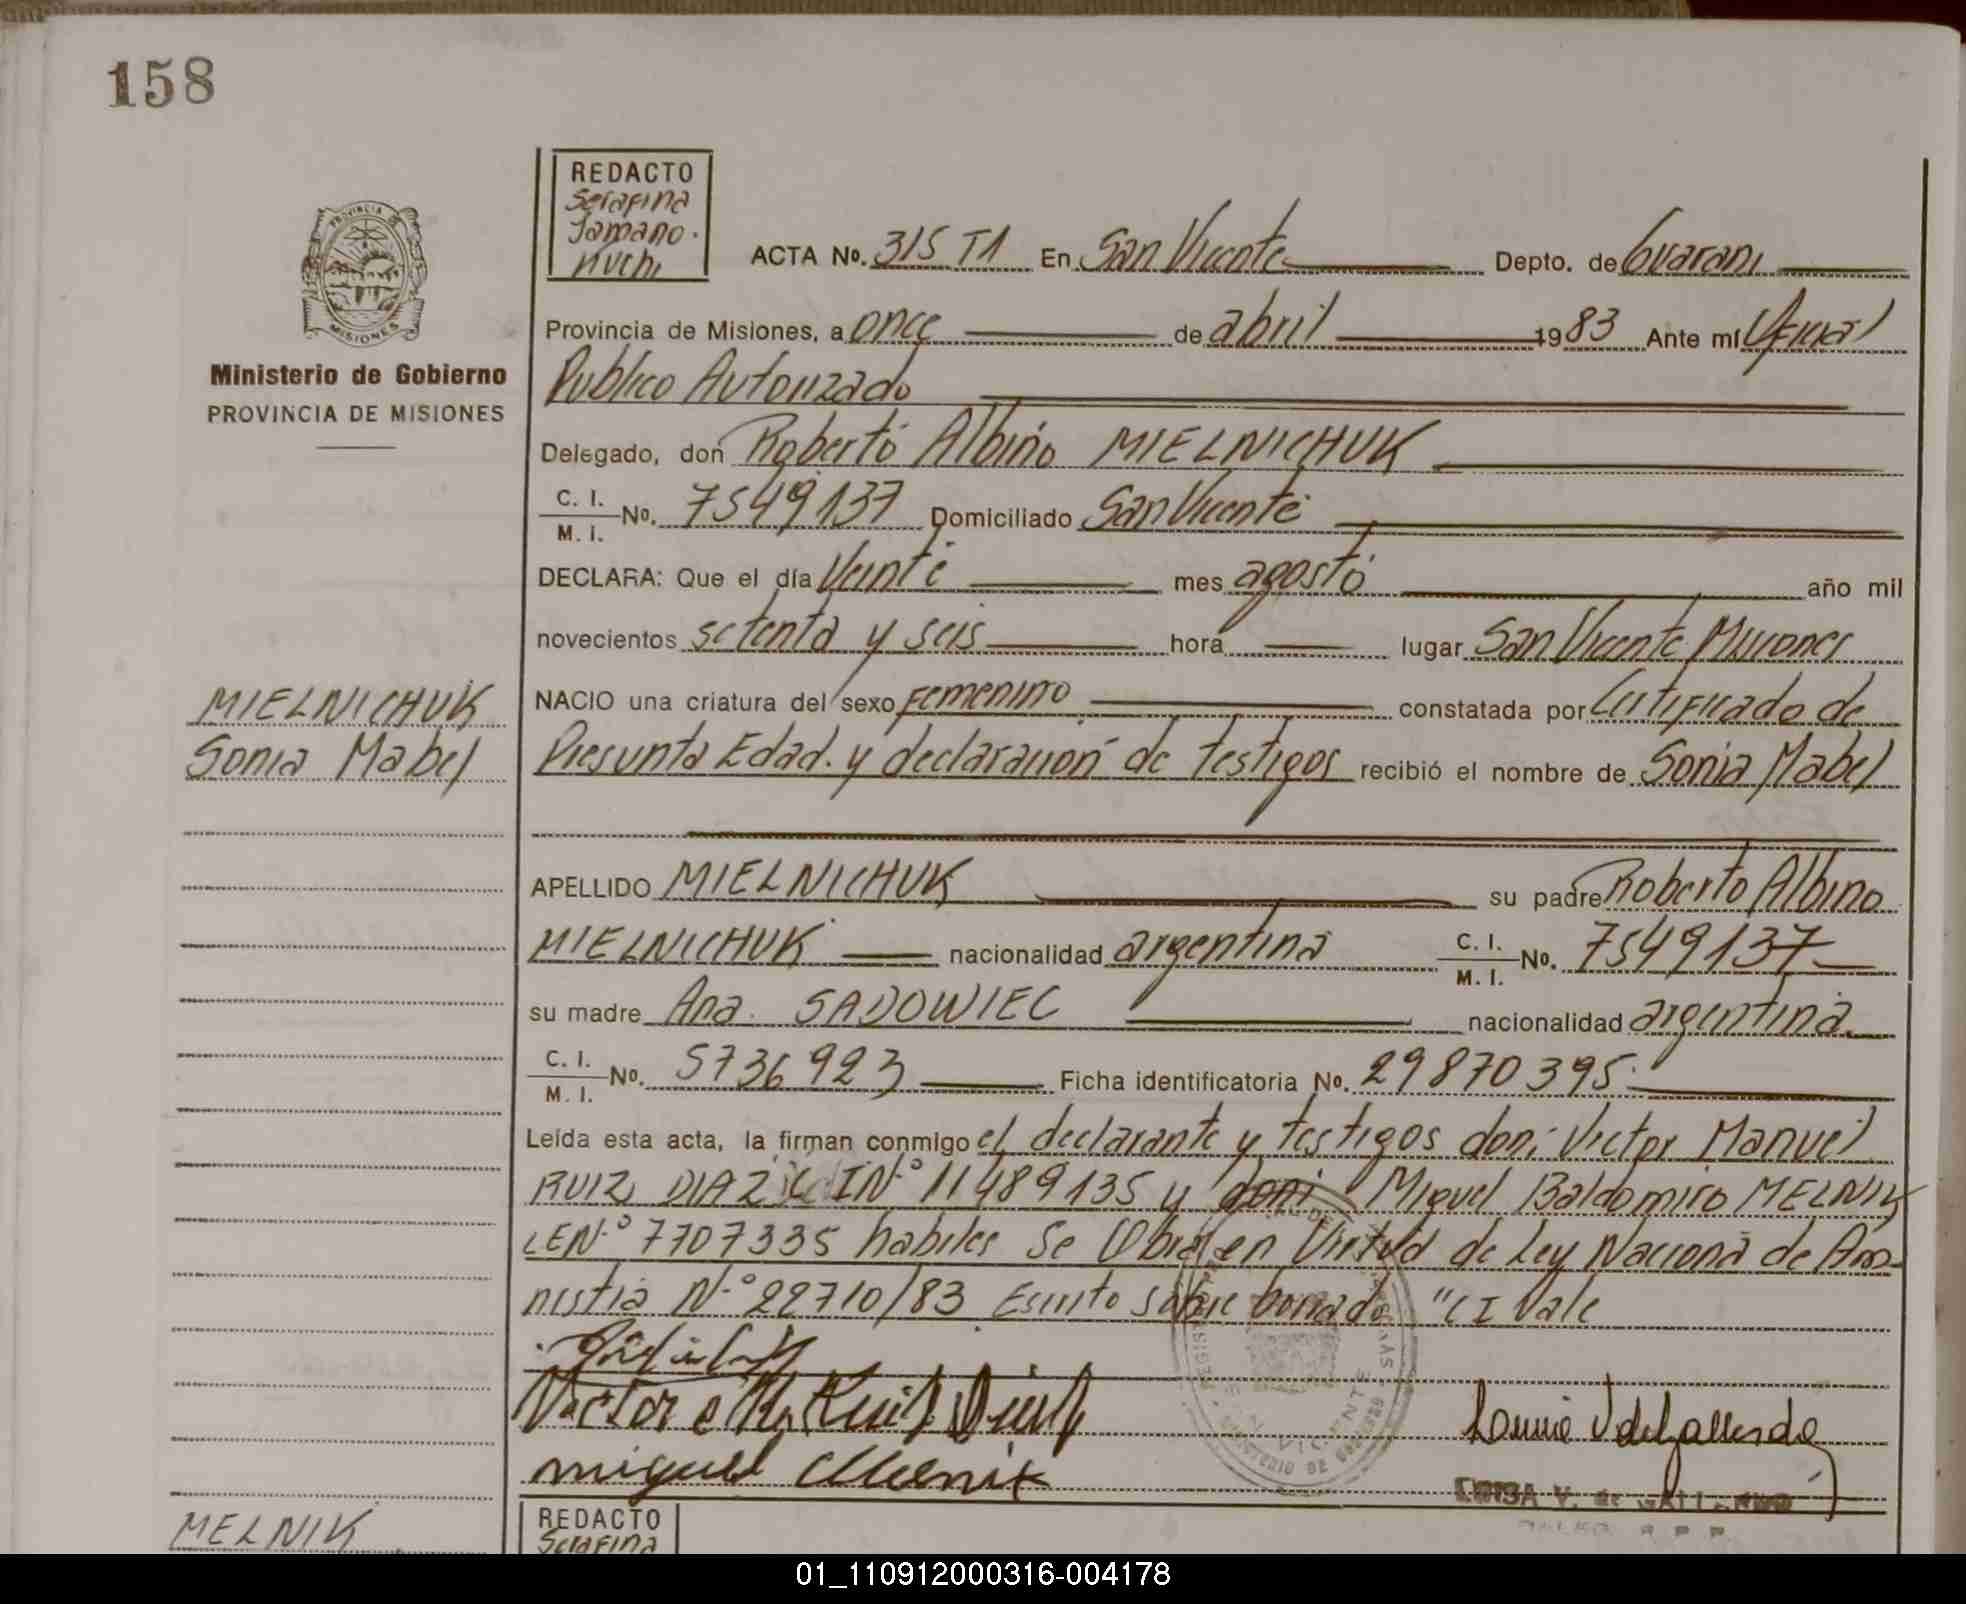 158
REDACTO
Serafina
Jamano.
nuchi
PROVINCIA DE
MISIONES
Ministerio de Gobierno
PROVINCIA DE MISIONES
ACTA No. 315 T1 En San Vicente Depto. de Guarani
Provincia de Misiones, a once de abril 1983 Ante mí Oficial
Publico Autorizado
Delegado, don Roberto Albino MIELNICHUK
C. I.
M. I. No. 7549137 Domiciliado San Vicente
DECLARA: Que el día Veinte mes agosto año mil
novecientos setenta y seis hora lugar San Vicente Misiones
MIELNICHUK
Sonia Mabel
NACIO una criatura del sexo Femenino constatada por Certificado de
Presunta Edad. y declaracion de testigos recibió el nombre de Sonia Mabel
APELLIDO MIELNICHUK su padre Roberto Albino
MIELNICHUK nacionalidad argentina C. I.
M. I. No. 7549137
su madre Ana. SADOWIEC nacionalidad argentina
C. I.
M. I. No. 5736923 Ficha identificatoria No. 29870395
Leída esta acta, la firman conmigo el declarante y testigos don; Victor Manuel
RUIZ DIAZ C IN° 11489135 y don; Miguel Baldomiro MELNIK
LEN° 7707335 habiles Se Obra en Virtud de Ley Naciona de Am-
nistia N° 22710/83 Escrito sobre borrado "CI Vale
Victor M. Ruiz Diaz
miguel Melnik
SAN VICENTE
MINISTERIO DE GOBIERNO
LUISA V. de GALLARDO
MELNIK
REDACTO
Serafina
01_110912000316-004178